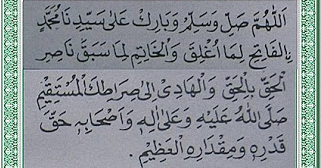 اَللّٰهُمَّ صَلِّ وَسَلِّمْ وَبَارِكْ عَلٰى سَيِّدِنَا مُحَمَّدٍ
ࣙالْفَاتِحِ لِمَا اُغْلِقَ وَالْخَاتِمِ لِمَا سَبَقَ نَاصِرِ
الْحَقِّ بِالْحَقِّ وَالْهَادِى اِلٰى صِرَاطِكَ الْمُسْتَقِيْمِ
صَلَّى اللّٰهُ عَلَيْهِ وَعَلٰى اٰلِهٖ وَاَصْحَابِهٖ حَقَّ
قَدْرِهٖ وَمِقْدَارِهِ الْعَظِيْمِ.